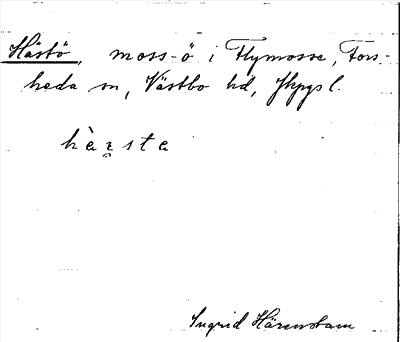 Hästö, moss-ö i Flymosse, Fors-
heda sn, Västbo hd, Jkpgs l.
Ingrid Härenstam